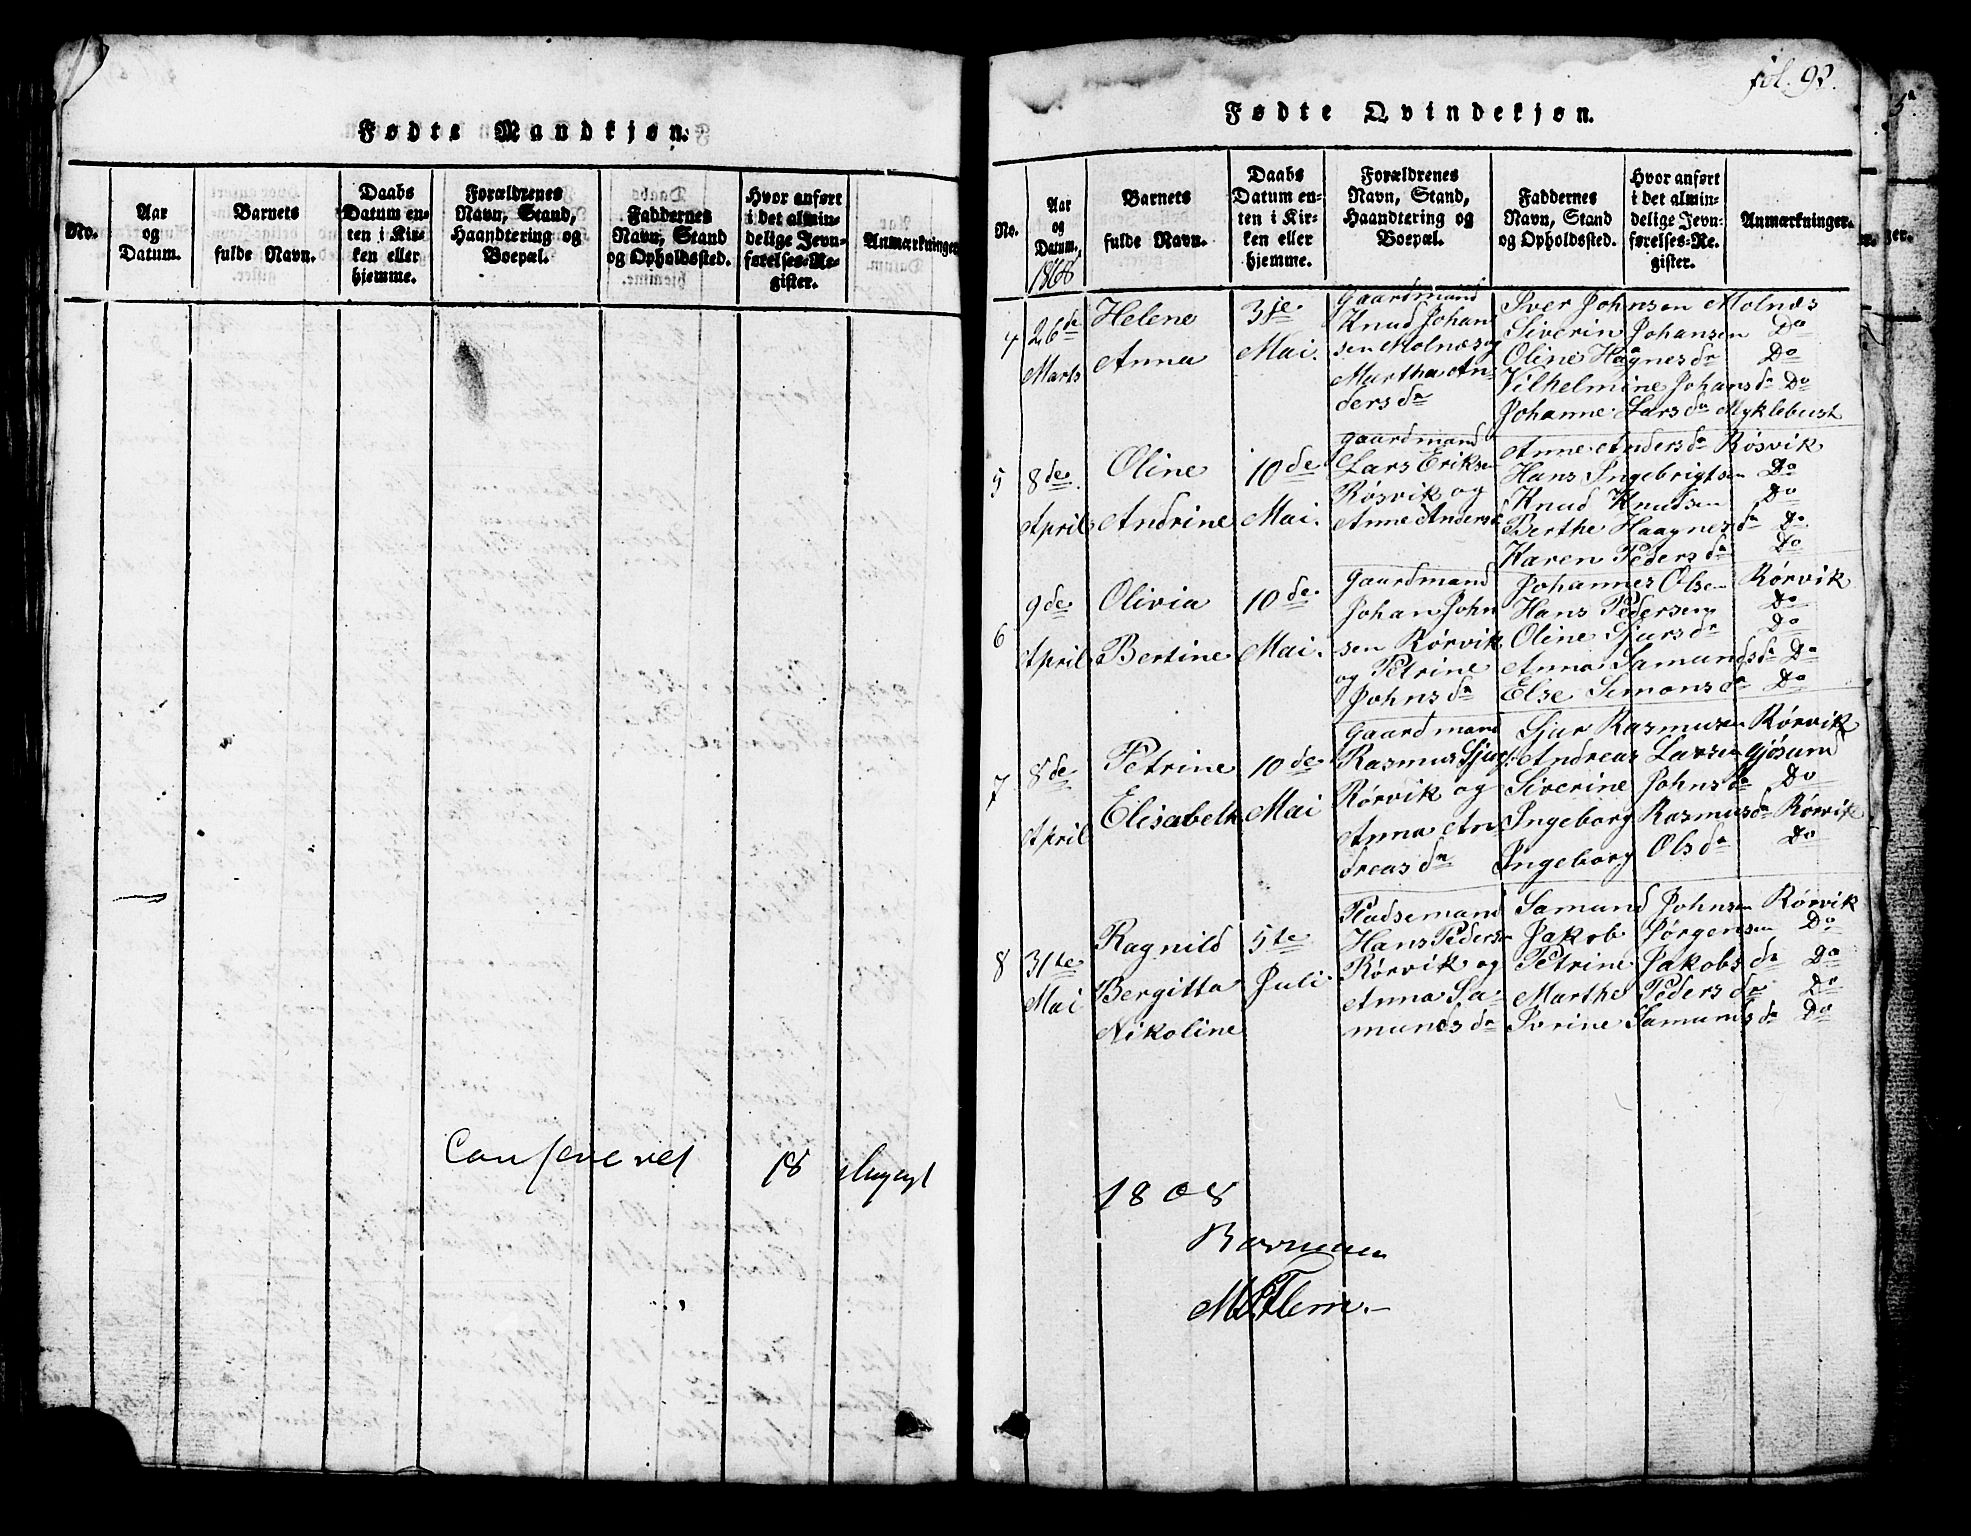 Fødte Mandkjøn.
No.
Aar og Datum.
Barnets fulde Navn.
Daabs Datum enten i Kirken eller hjemme.
Forældrenes Navn, Stand, Haandtering og Boepæl.
Faddernes Navn, Stand og Opholdssted.
Hvor anført i det almindelige Jevnførelses-Register.
Anmærkninger
18
fol. 92.
Fødte Qvindekjøn.
No.
Aar og Datum.
1868
Barnets fulde Navn.
Daabs Datum enten i Kirken eller hjemme.
Forældrenes Navn, Stand, Haandtering og Boepæl.
Faddernes Navn, Stand og Opholdssted.
Hvor anført i det almindelige Jevnførelses-Register.
Anmærkninger.
4
26de
Marts
Helene
Anna
3je
Mai.
Gaardmand
Knud Johan
sen Molnæs og
Martha An-
dersdr
Iver Johnsen Molnæs
Siverin Johansen Do
Oline Hagnesdr Do
Vilhelmine Johansdr Do
Johanne Larsdr Myklebust
5
8de
April
Oline
Andrine
10de
Mai.
Gaardmand
Lars Eriksen
Røsvik og
Anne Andersd
Anne Andersdr Røsvik
Hans Ingebrigtsen Do
Knud Knudsen Do
Berthe Haagnesdr Do
Karen Pedersdr Do
6
9de
April
Olivia
Bertine
10de
Mai.
Gaardmand
Johan John
sen Rørvik
og Petrine
Johnsdr
Johannes Olsen Rørvik
Hans Pedersen Do
Oline Sjursdr Do
Anna Samundsdr Do
Else Simonsdr Do
7
8de
April
Petrine
Elisabeth
10de
Mai
Gaardmand
Rasmus Sjurs.
Rørvik og
Anna An
dreasdr
Sjur Rasmusen Rørvik
Andreas Larsen Gjøsund
Siverine Johnsdr Do
Ingeborg Rasmusdr Rørvik
Ingeborg Olsdr Do
8
31te
Mai
Ragnild
Bergitta
Nikoline
5te
Juli
Pladsemand
Hans Pedersen
Rørvik og
Anna Sa-
mundsdr
Samund Johnsen Rørvik
Jakob Jørgensen Do
Petrine Jakobsdr Do
Marthe Pedersdr Do
Ivrine Samundsdr Do